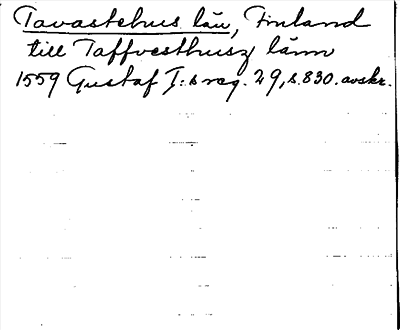 Tavastehus län, Finland
till Taffvesthusz länn
1559 Gustaf I:s reg. 29, s. 830. avskr.